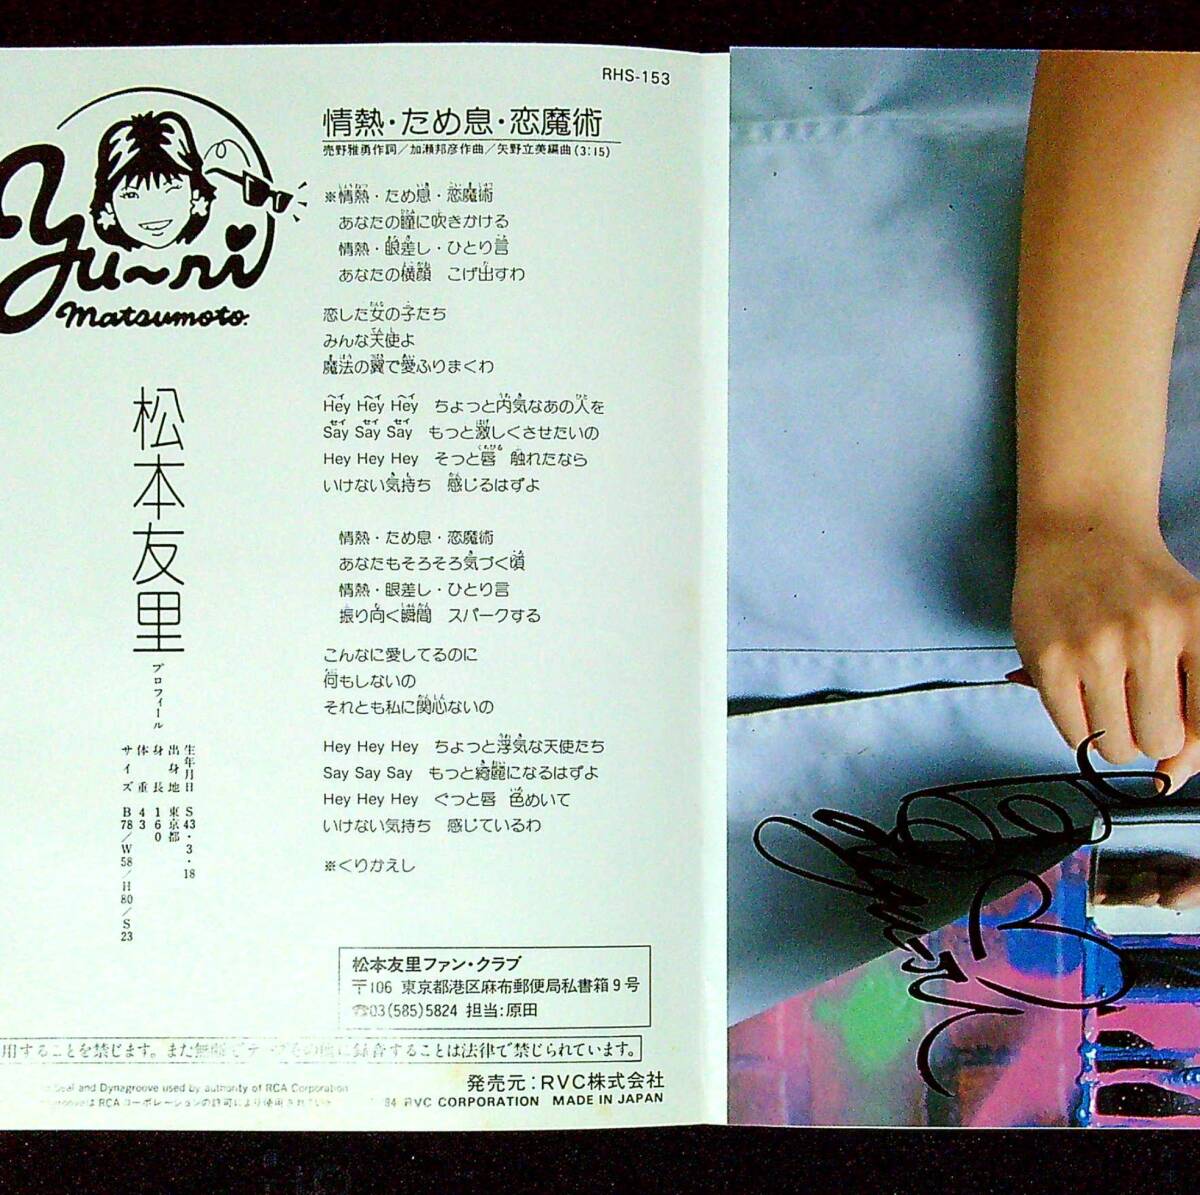 RHS-153
Yu~ri
Matsumoto.
情熱・ため息・恋魔術
売野雅勇作詞/加瀬邦彦作曲/矢野立美編曲(3:15)
※情熱・ため息・恋魔術
あなたの瞳に吹きかける
情熱・眼差し・ひとり言
あなたの横顔 こげ出すわ
恋した女の子たち
みんな天使よ
魔法の翼で愛ふりまくわ
Hey Hey Hey ちょっと内気なあの人を
Say Say Say もっと激しくさせたいの
Hey Hey Hey そっと唇 触れたなら
いけない気持ち 感じるはずよ
情熱・ため息・恋魔術
あなたもそろそろ気づく頃
情熱・眼差し・ひとり言
振り向く瞬間 スパークする
こんなに愛してるのに
何もしないの
それとも私に関心ないの
Hey Hey Hey ちょっと浮気な天使たち
Say Say Say もっと綺麗になるはずよ
Hey Hey Hey ぐっと唇 色めいて
いけない気持ち 感じているわ
※くりかえし
松本友里
プロフィール
生年月日 S43・3・18
出身地 東京都
身長 160
体重 43
サイズ B78/W58/H80/S23
松本友里ファン・クラブ
〒106 東京都港区麻布郵便局私書箱9号
☎03(585)5824 担当:原田
用することを禁じます。また無断でテープその他に録音することは法律で禁じられています。
Seal and Dynagroove used by authority of RCA Corporation
発売元:RVC株式会社
grooveはRCAコーポレーションの許可により使用されてい
84 RVC CORPORATION MADE IN JAPAN